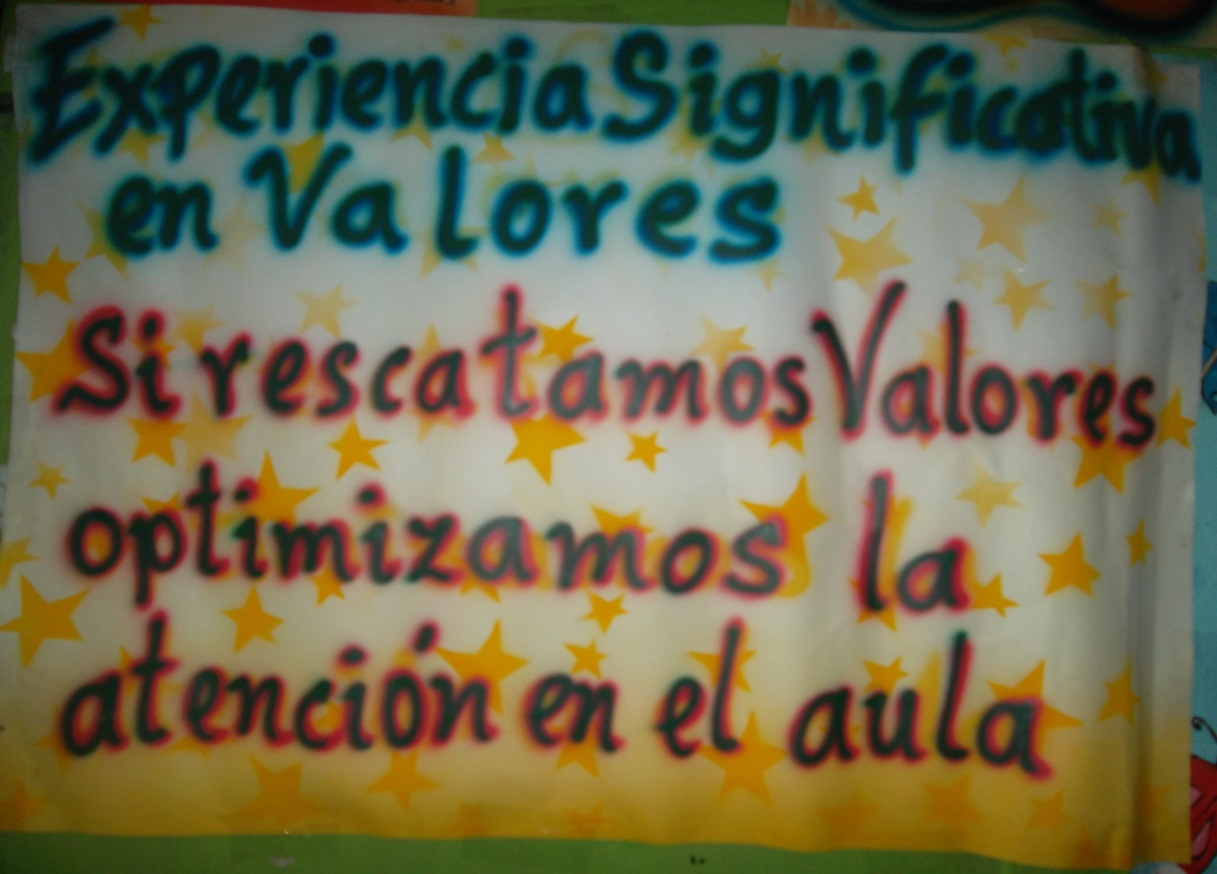 Experiencia Significativa
en Valores
Si rescatamos Valores
optimizamos la
atención en el aula